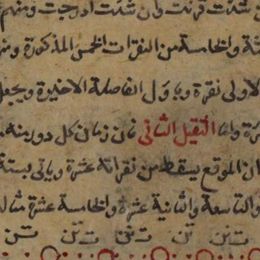 شئت قرنت وان شئت ادرجت ومنهم
والخامسة من النقرات الخمس المذكورة ومنهم
الاولى نقرة وياول الفاصلة الاخيرة ويجعل
واما الثقيل الثاني فان زمان كل دور منه
ان الموقع يسقط من نقراته عشرة وياتي بستة
والتاسعة والثانية عشرة والخامسة عشرة مثاله
تن تن تن تن تن تن